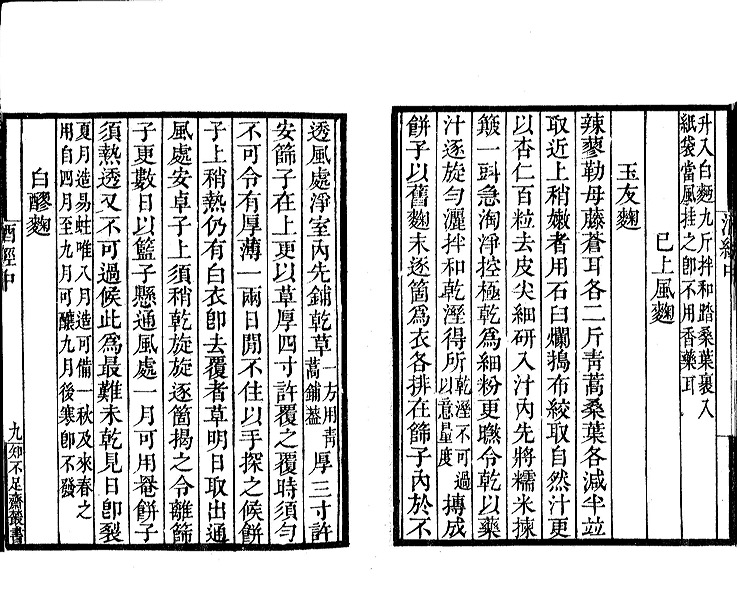 升入白麵九斤拌和踏桑葉裹入
紙袋當風挂之卽不用香藥耳
已上風麴
玉友麴
辣蓼勒母藤蒼耳各二斤靑蒿桑葉各減半竝
取近上稍嫩者用石臼爛搗布絞取自然汁更
以杏仁百粒去皮尖細硏入汁內先將糯米揀
簸一㪷急淘淨控極乾爲細粉更曬令乾以藥
汁逐旋勻灑拌和乾溼得所乾溼不可過以意量度摶成
餠子以舊麴末逐箇爲衣各排在篩子內於不
透風處淨室內先鋪乾草一方用靑蒿鋪蓋厚三寸許
安篩子在上更以草厚四寸許覆之覆時須勻
不可令有厚薄一兩日閒不住以手探之候餠
子上稍熱仍有白衣卽去覆者草明日取出通
風處安卓子上須稍乾旋旋逐箇揭之令離篩
子更數日以籃子懸通風處一月可用罨餠子
須熱透又不可過候此爲最難未乾見日卽裂
夏月造易蛀唯八月造可備一秋及來春之
用自四月至九月可釀九月後寒卽不發
白醪麴
酒經中
九
知不足齋叢書